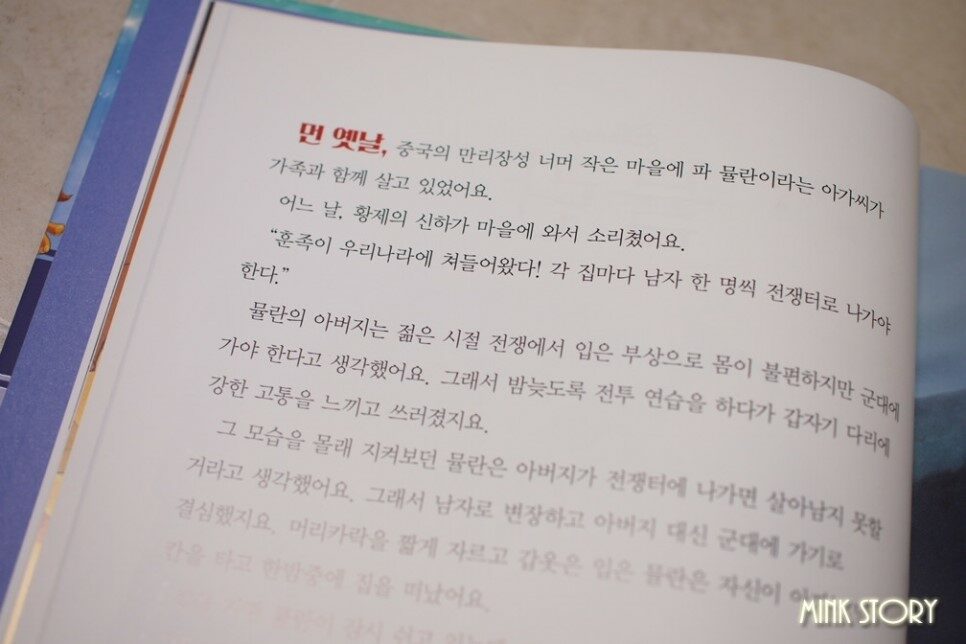 먼 옛날, 중국의 만리장성 너머 작은 마을에 파 뮬란이라는 아가씨가
가족과 함께 살고 있었어요.
어느 날, 황제의 신하가 마을에 와서 소리쳤어요.
“훈족이 우리나라에 쳐들어왔다! 각 집마다 남자 한 명씩 전쟁터로 나가야
한다.”
뮬란의 아버지는 젊은 시절 전쟁에서 입은 부상으로 몸이 불편하지만 군대에
가야 한다고 생각했어요. 그래서 밤늦도록 전투 연습을 하다가 갑자기 다리에
강한 고통을 느끼고 쓰러졌지요.
그 모습을 몰래 지켜보던 뮬란은 아버지가 전쟁터에 나가면 살아남지 못할
거라고 생각했어요. 그래서 남자로 변장하고 아버지 대신 군대에 가기로
결심했지요. 머리카락을 짧게 자르고 갑옷은 입은 뮬란은 자신이 아끼는
칸을 타고 한밤중에 집을 떠났어요.
뮬란이 잠시 쉬고 있는데
MINK STORY